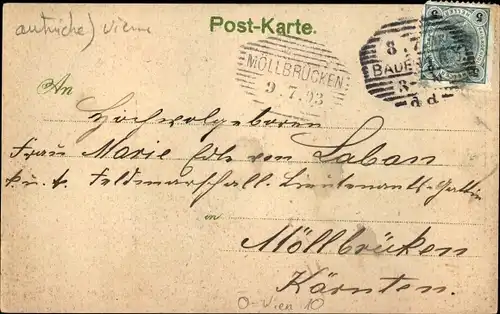 autriche) Vienne
Post-Karte.
MÖLLBRÜCKEN
9.7.03
8.7
BADEN
5
5
An
Hochwolgeboren
Frau Marie Edle von Laban
k. u. k. Feldmarschall-Lieutenants-Gattin
in
Möllbrücken
Kärnten.
O-Wien 10